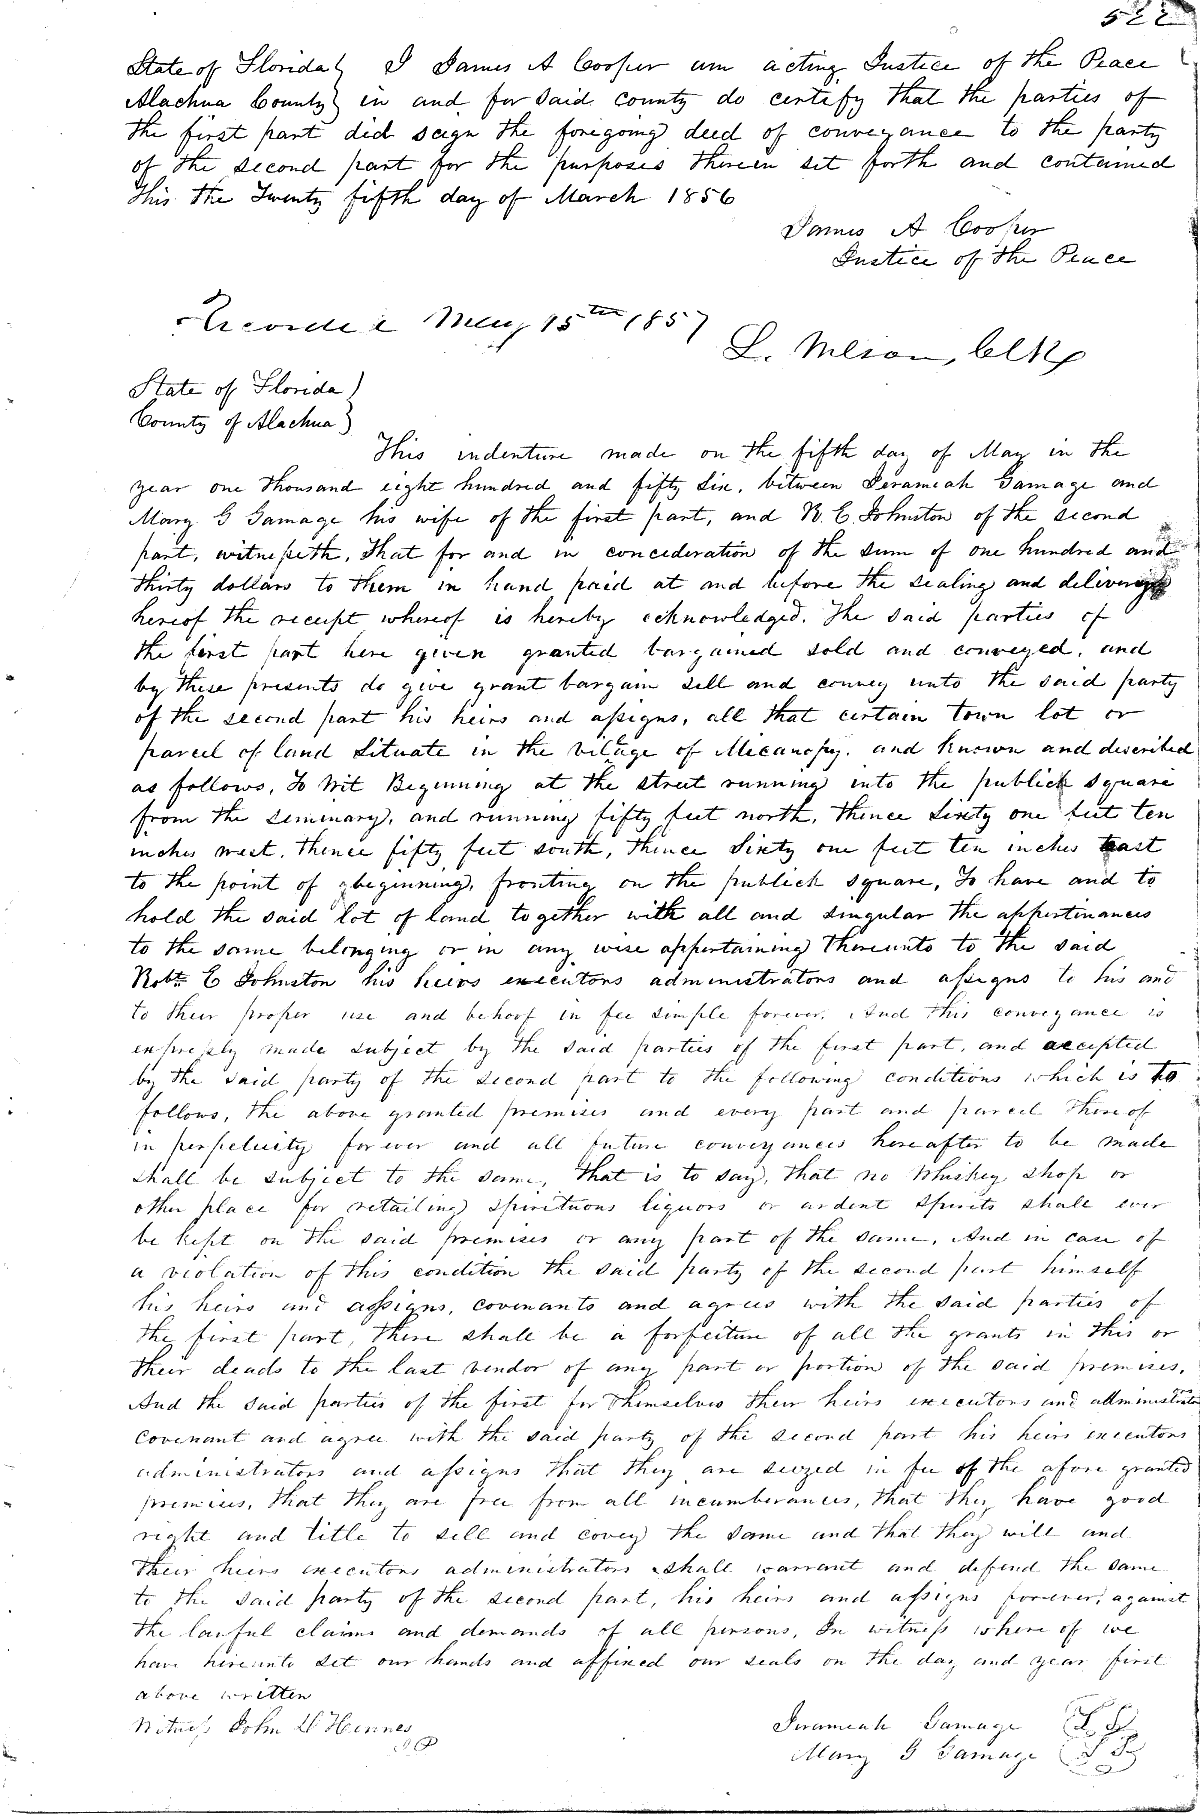 522
State of Florida } I James A Cooper am acting Justice of the Peace
Alachua County } in and for said county do certify that the parties of
the first part did seign the foregoing deed of conveyance to the party
of the second part for the purposes therein set forth and contained
this the Twenty fifth day of March 1856
James A Cooper
Justice of the Peace
Recorded May 15th 1857
L. Wilson, Clk
State of Florida }
County of Alachua }
This indenture made on the fifth day of May in the
year one thousand eight hundred and fifty six, between Jerameah Gamage and
Mary G Gamage his wife of the first part, and R. E. Johnston of the second
part, witnesseth, That for and in concideration of the sum of one hundred and
thirty dollars to them in hand paid at and before the sealing and delivery
hereof the receipt whereof is hereby acknowledged. The said parties of
the first part here given granted bargained sold and conveyed, and
by these presents do give grant bargain sell and convey unto the said party
of the second part his heirs and assigns, all that certain town lot or
parcel of land situate in the village of Micanopy. and known and described
as follows, To Wit Beginning at the street running into the publick square
from the seminary, and running fifty feet north, thence sixty one feet ten
inches west, thence fifty feet south, thence sixty one feet ten inches east
to the point of beginning, fronting on the publick square, To have and to
hold the said lot of land together with all and singular the appertinances
to the same belonging or in any wise appertaining thereunto to the said
Robt E Johnston his heirs executors administrators and assigns to his and
to their proper use and behoof in fee simple forever. And this conveyance is
expressly made subject by the said parties of the first part, and accepted
by the said party of the second part to the following conditions which is to
follows, the above granted premises and every part and parcel thereof
in perpetuity forever and all future conveyances hereafter to be made
shall be subject to the same, that is to say, that no Whiskey shop or
other place for retailing spirituous liquors or ardent spirits shall ever
be kept on the said premises or any part of the same, And in case of
a violation of this condition the said party of the second part himself
his heirs and assigns, covenants and agrees with the said parties of
the first part, there shall be a forfeiture of all the grants in this or
their deads to the last vendor of any part or portion of the said premises,
And the said parties of the first for themselves their heirs executors and administrators
covenant and agree with the said party of the second part his heirs executors
administrators and assigns that they are seized in fee of the afore granted
premises, that they are free from all incumberances, that they have good
right and title to sell and covey the same and that they will and
their heirs executors administrators shall warrant and defend the same
to the said party of the second part, his heirs and assigns forever, against
the lawful claims and demands of all persons, In witness where of we
have hereunto set our hands and affixed our seals on the day and year first
above written
Witness John H Hennes
J P
Jerameah Gamage LS
Mary G Gamage LS